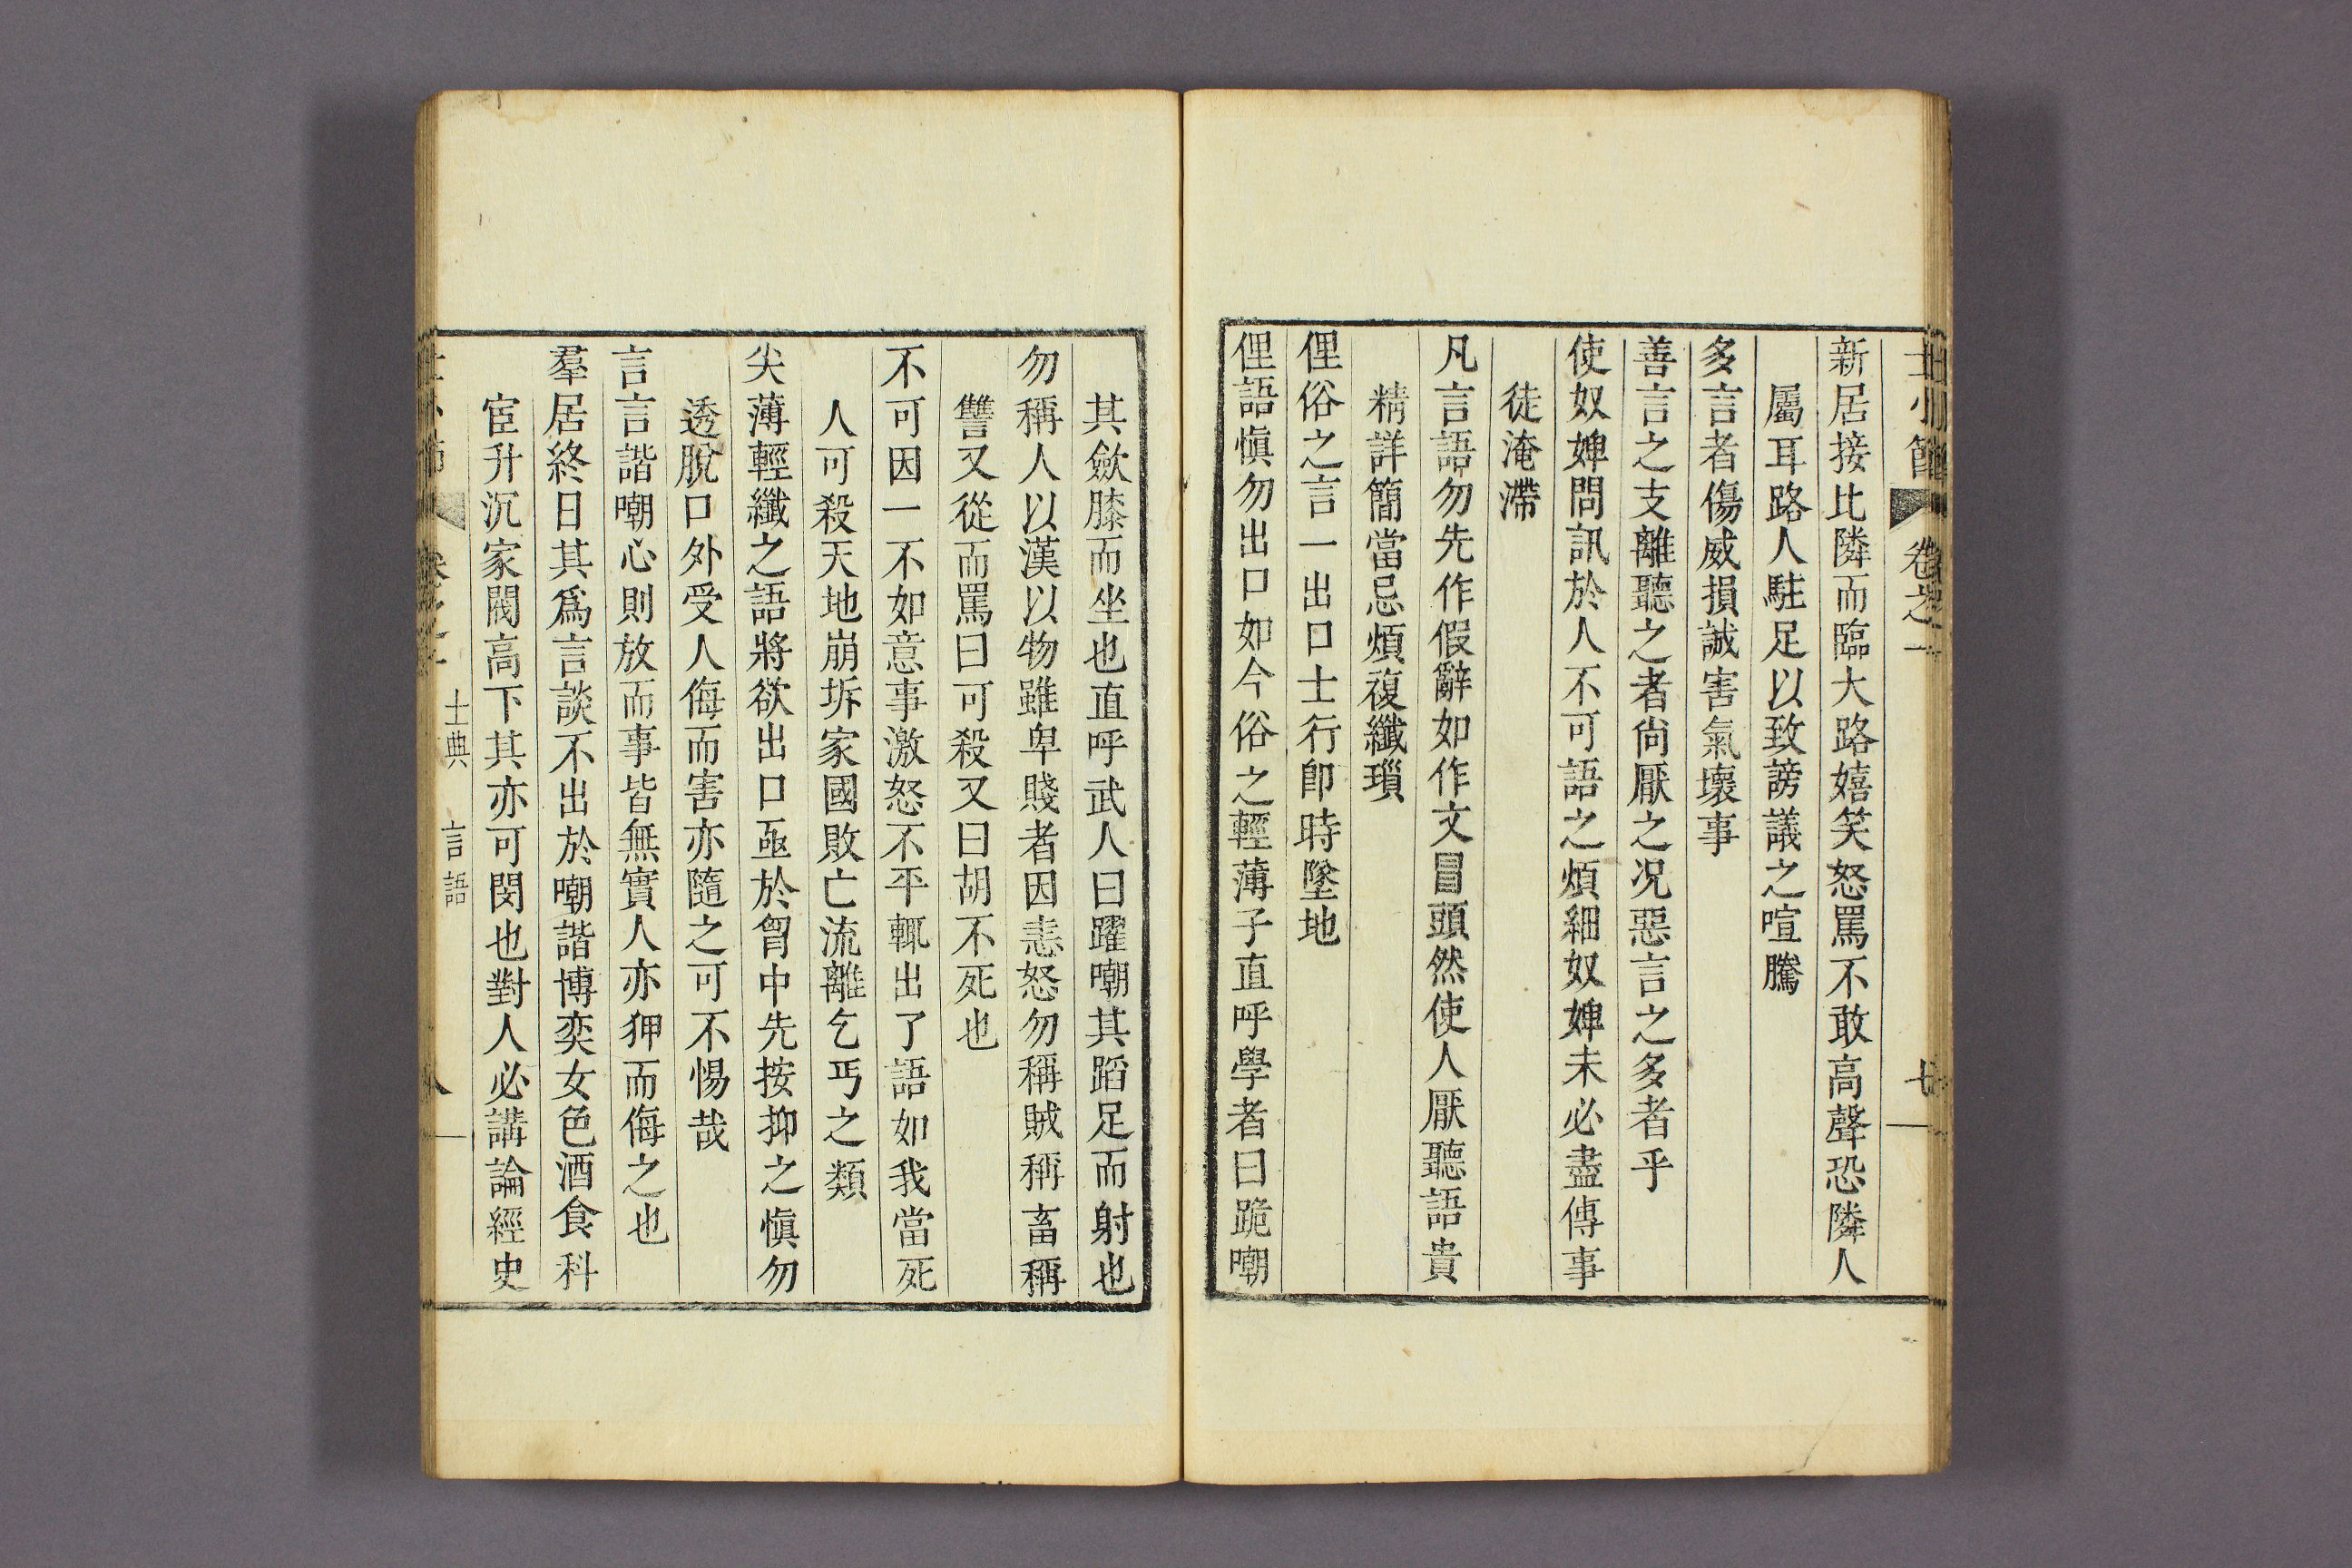 士小節 卷之一 七
新居接比隣而臨大路嬉笑怒罵不敢高聲恐隣人
屬耳路人駐足以致謗議之喧騰
多言者傷威損誠害氣壞事
善言之支離聽之者尙厭之况惡言之多者乎
使奴婢問訊於人不可語之煩細奴婢未必盡傳事
徒淹滯
凡言語勿先作假辭如作文冒頭然使人厭聽語貴
精詳簡當忌煩複纖瑣
俚俗之言一出口士行卽時墜地
俚語愼勿出口如今俗之輕薄子直呼學者曰跪嘲
其斂膝而坐也直呼武人曰躍嘲其蹈足而射也
勿稱人以漢以物雖卑賤者因恚怒勿稱賊稱畜稱
讐又從而罵曰可殺又曰胡不死也
不可因一不如意事激怒不平輒出了語如我當死
人可殺天地崩坼家國敗亡流離乞丐之類
尖薄輕纖之語將欲出口亟於胷中先按抑之愼勿
透脫口外受人侮而害亦隨之可不惕哉
言言諧嘲心則放而事皆無實人亦狎而侮之也
羣居終日其爲言談不出於嘲諧博奕女色酒食科
宦升沉家閥高下其亦可閔也對人必講論經史
士典 言語 八